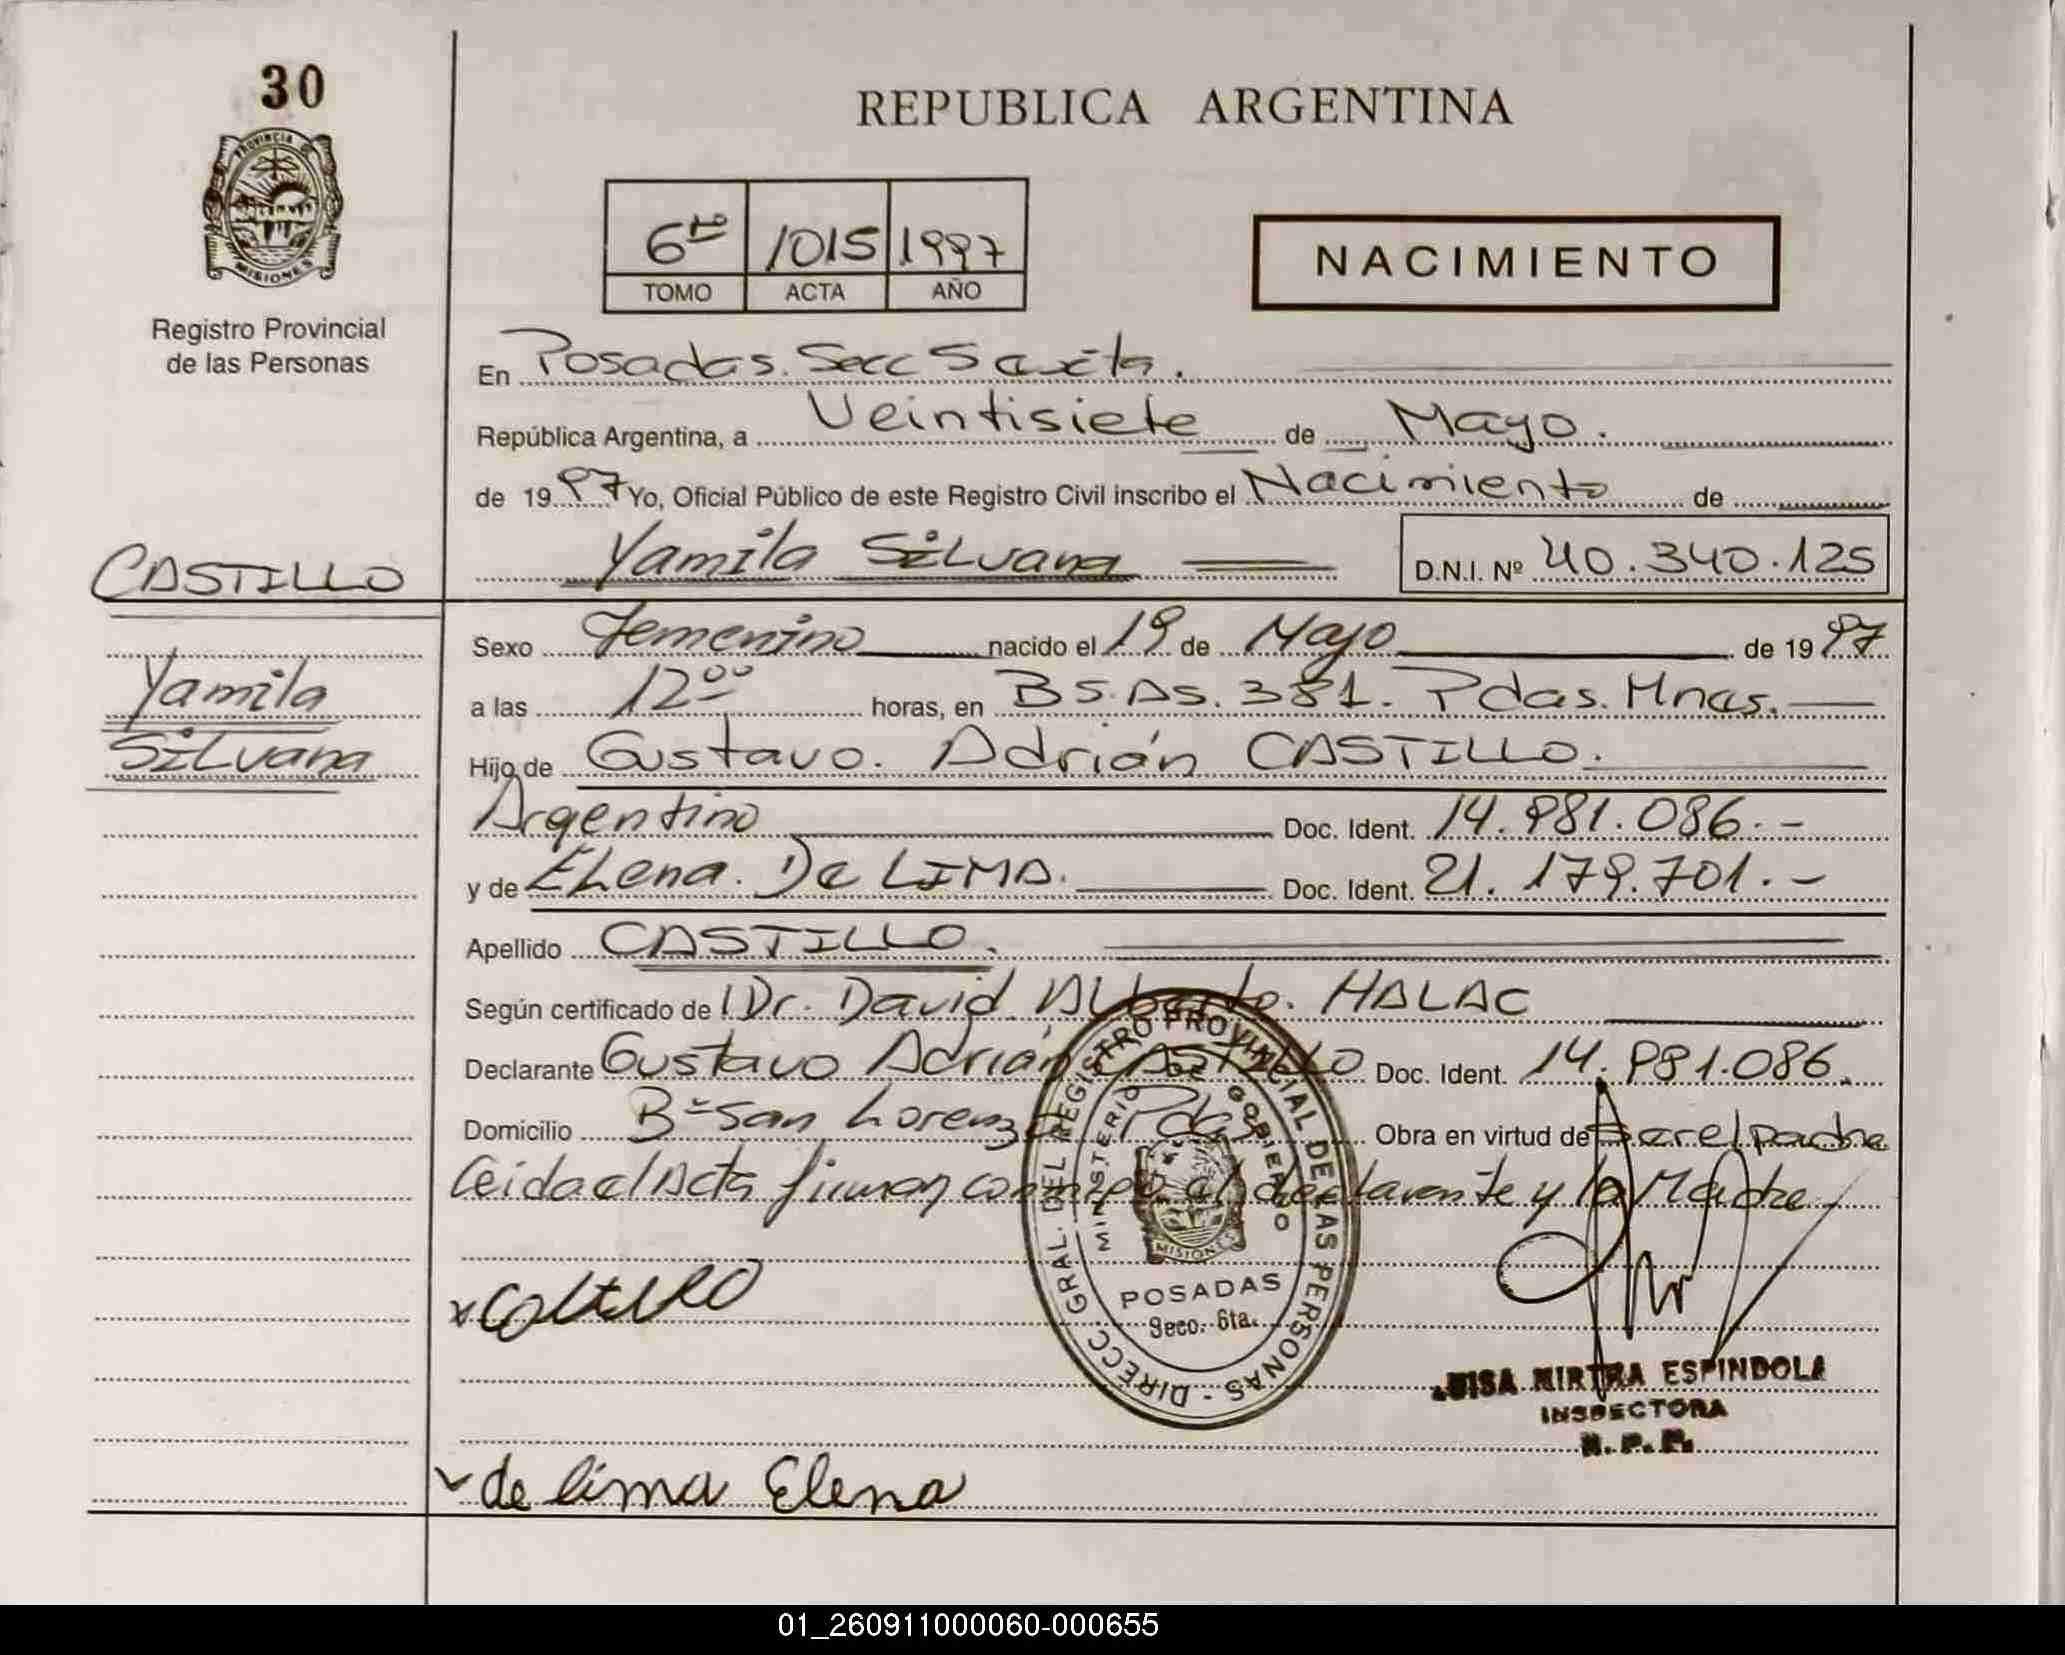 30
PROVINCIA DE
MISIONES
Registro Provincial
de las Personas
REPUBLICA ARGENTINA
6to 1015 1997
TOMO ACTA AÑO
NACIMIENTO
En Posadas. Secc Sexta.
República Argentina, a Veintisiete de Mayo.
de 1997 Yo, Oficial Público de este Registro Civil inscribo el Nacimiento de
Yamila Silvana D.N.I. Nº 40.340.125
CASTILLO
Yamila
Silvana
Sexo Femenino nacido el 19 de Mayo de 1997
a las 12 00 horas, en BS.AS. 381. Pdas. Mnes.
Hijo de Gustavo. Adrián CASTILLO.
Argentino Doc. Ident. 14.981.086.-
y de Elena. De LIMA. Doc. Ident. 21.179.701.-
Apellido CASTILLO.
Según certificado de Dr. David Alberto. HALAC
Declarante Gustavo Adrián CASTILLO Doc. Ident. 14.981.086.
Domicilio Bº San Lorenzo Pdas Obra en virtud de ser el padre
Leida el Acta firman conmigo el declarante y la Madre
DIRECC. GRAL. DEL REGISTRO PROVINCIAL DE LAS PERSONAS -
MINISTERIO DE GOBIERNO
MISIONES
POSADAS
Secc. 6ta.
LUISA MIRTHA ESPINDOLA
INSPECTORA
R.P.P.
de lima Elena
01_260911000060-000655